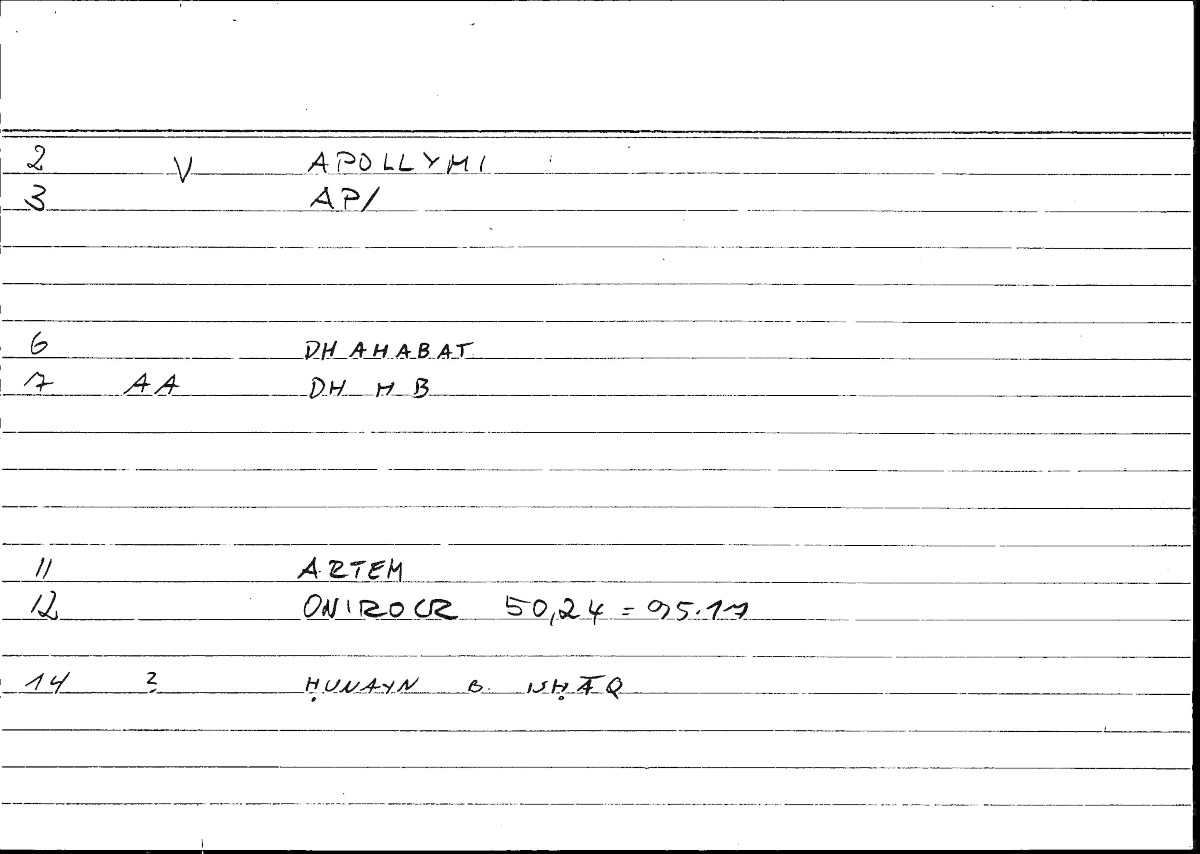 2 V APOLLYMI
3 AP/
6 DHAHABAT
7 AA DH H B
11 ARTEM
12 ONIROCR 50,24 = 95.17
14 2 ḤUNAYN B. ISḤĀQ